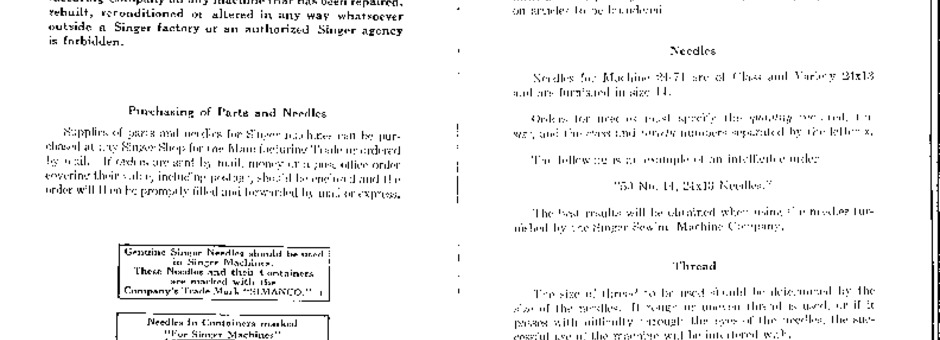 rebuilt, reconditioned or altered in any way whatsoever
outside a Singer factory or an authorized Singer agency
is forbidden.
Purchasing of Parts and Needles
Supplies of parts and needles for Singer machines can be pur-
chased at any Singer Shop for the Manufacturing Trade or ordered
by mail. If orders are sent by mail, money or a post office order
covering their value, including postage, should be enclosed and the
order will then be promptly filled and forwarded by mail or express.
Genuine Singer Needles should be used
in Singer Machines.
These Needles and their Containers
are marked with the
Company's Trade Mark "SIMANCO."
Needles in Containers marked
"For Singer Machines"
on articles to be laundered
Needles
Needles for Machine 24-71 are of Class and Variety 24x13
and are furnished in size 14.
Orders for needles must specify the quantity required, the
size, and the class and variety numbers separated by the letter x.
The following is an example of an intelligible order
"50 No. 14, 24x13 Needles."
The best results will be obtained when using the needles fur-
nished by the Singer Sewing Machine Company.
Thread
The size of thread to be used should be determined by the
size of the needles. If rough or uneven thread is used, or if it
passes with difficulty through the eyes of the needles, the suc-
cessful use of the machine will be interfered with.